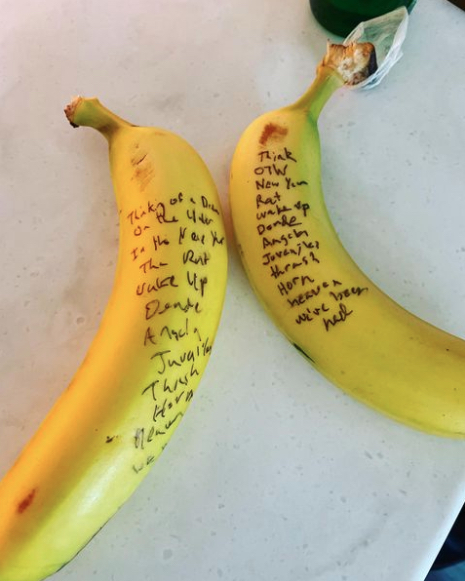 Think of a
On the
In the New Year
The Rat
Wake Up
Donde
Angela
Juveniles
Thrash
Horn
Heaven
we
Think
OTW
New Year
Rat
wake up
Donde
Angela
Juveniles
thrash
Horn
heaven
we've been
had